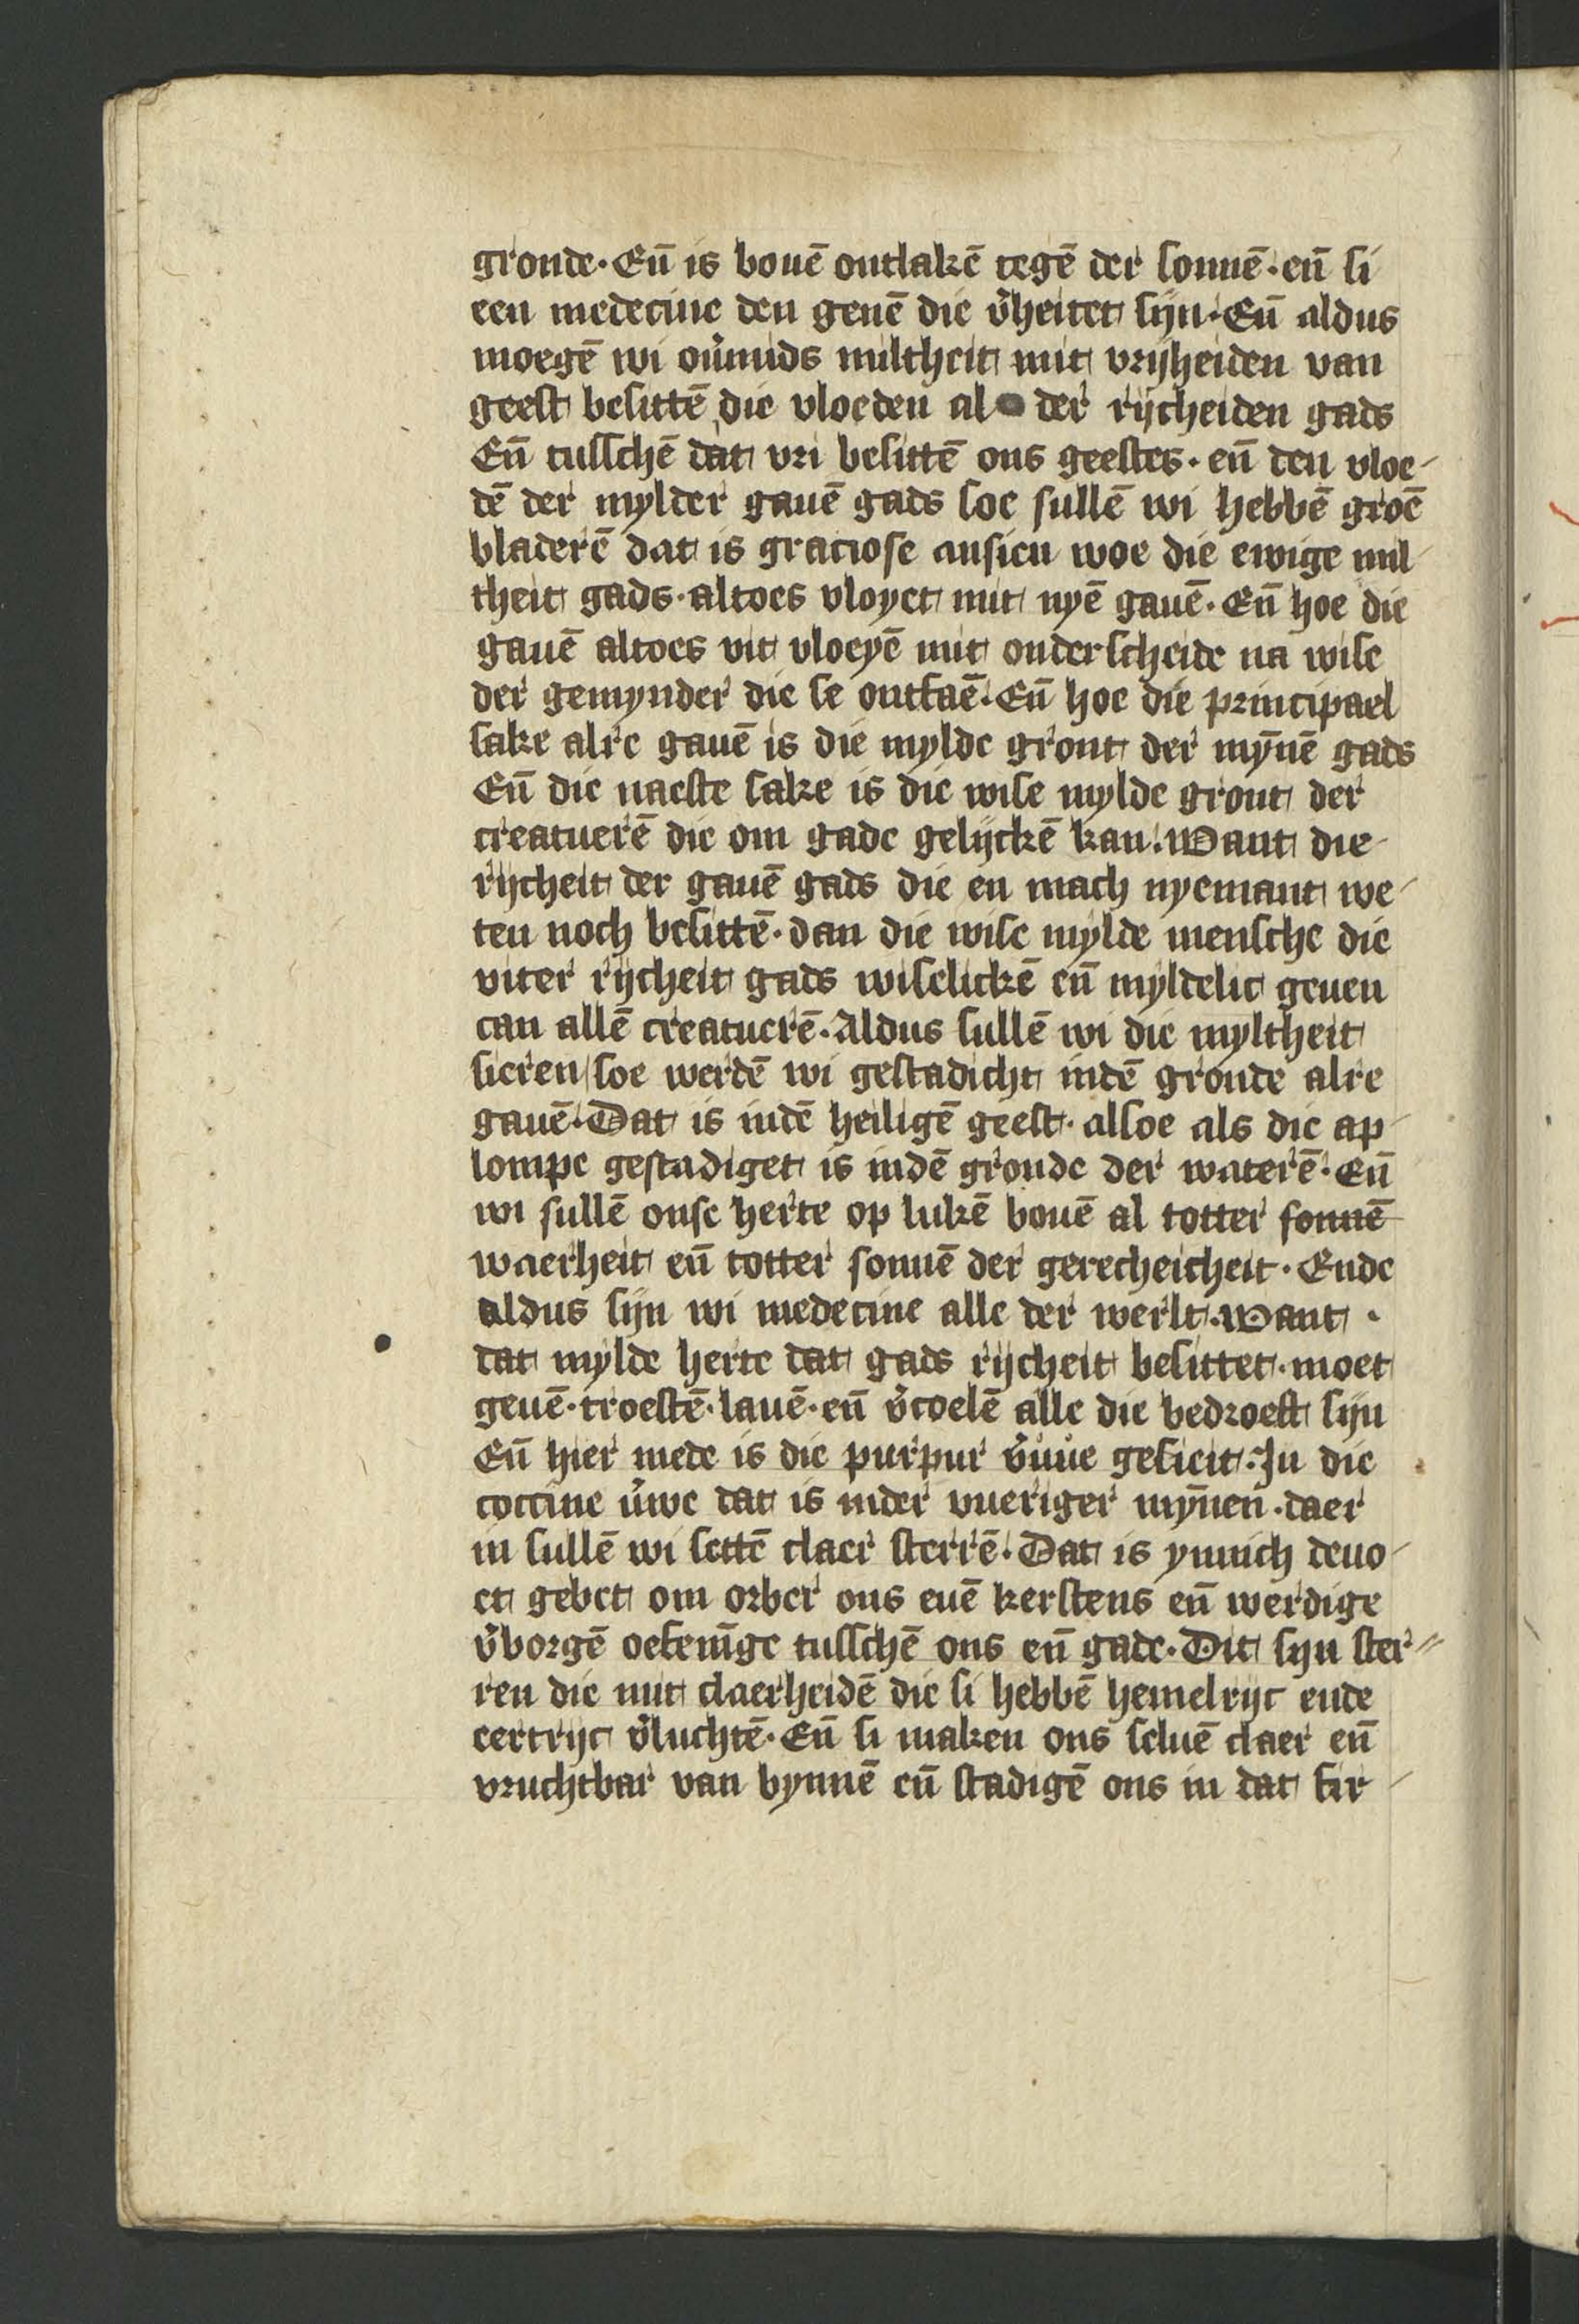 gronde · En̄ is bouē ontlakē tegē der sonnē · en̄ si
een medecine den genē die v̾heitet sijn · En̄ aldus
moegē wi ou̾mids miltheit mit vrijheiden van
geest besittē die vloeden al der rijcheiden gads
En̄ tusschē dat vri besittē ons geestes · en̄ den vloe-
dē der mylder gauē gads soe sullē wi hebbē groē
bladerē dat is graciose ansien woe die ewige mil-
theit gads · altoes vloyet mit nyē gauē · En̄ hoe die
gauē altoes vit vloeyē mit onderscheide na wise
der gemynder die se ontfaē · En̄ hoe die principael
sake alre gauē is die mylde gront der mȳnē gads
En̄ die naeste sake is die wise mylde gront der
creatuerē die om gade gelijckē kan · Want die
rijcheit der gauē gads die en mach nyemant we-
ten noch besittē · dan die wise mylde mensche die
viter rijcheit gads wiselickē en̄ myldelic geuen
can allē creatuerē · Aldus sullē wi die myltheit
sieren soe werdē wi gestadicht indē gronde alre
gauē · Dat is indē heiligē geest · alsoe als die ap-
lompe gestadiget is indē gronde der waterē · En̄
wi sullē onse herte op lukē bouē al totter sonnē
waerheit en̄ totter sonnē der gerecheicheit · Ende
aldus sijn wi medecine alle der werlt · Want ·
dat mylde herte dat gads rijcheit besittet · moet
geuē · troestē · lauē · en̄ v̾coelē alle die bedroeft sijn
En̄ hier mede is die purpur v̾uwe gesieit · In die
coccine v̾we dat is inder vueriger mȳnen · daer
in sullē wi settē claer sterrē · Dat is ynnich deuo-
et gebet om orber ons euē kerstens en̄ werdige
v̾borgē oefenīge tusschē ons en̄ gade · Dit sijn ster-
ren die mit claerheidē die si hebbē hemelrijc ende
eertrijc v̾luchtē · En̄ si maken ons seluē claer en̄
vruchtbar van bynnē en̄ stadigē ons in dat fir-